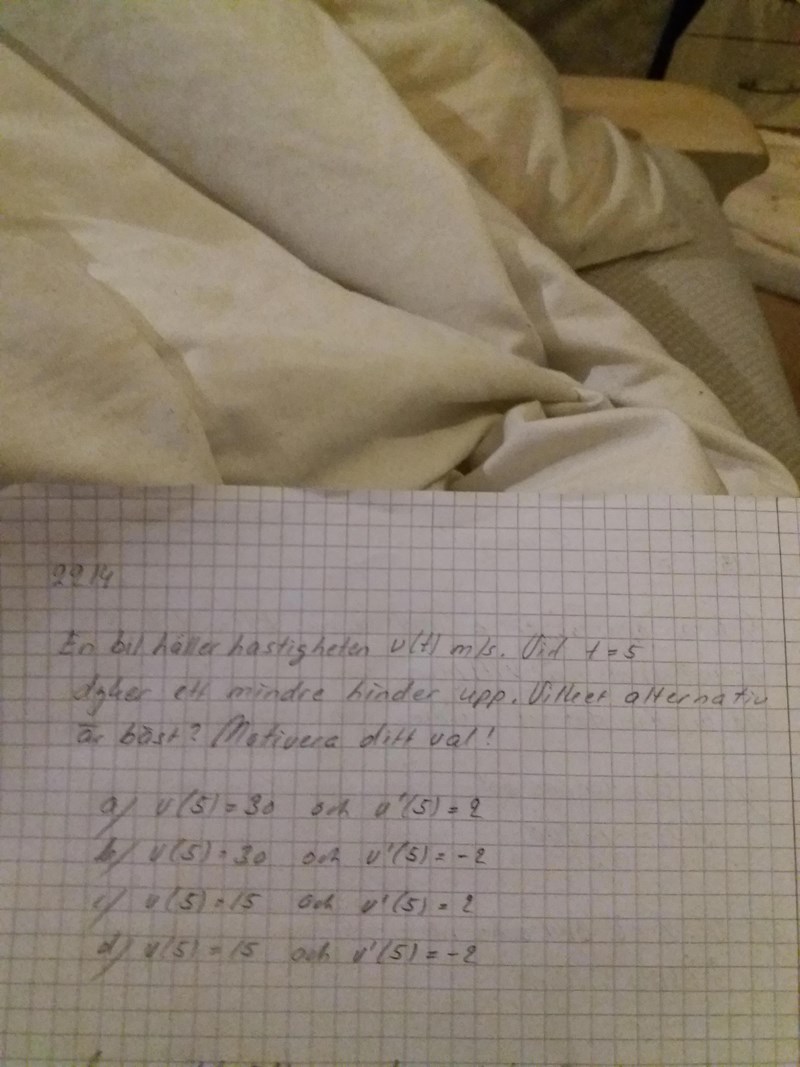 2214
En bil håller hastigheten v(t) m/s. Vid t=5
dyker ett mindre hinder upp. Vilket alternativ
är bäst? Motivera ditt val!
a) v(5)=30 och v'(5)=2
b) v(5)=30 och v'(5)=-2
c) v(5)=15 och v'(5)=2
d) v(5)=15 och v'(5)=-2